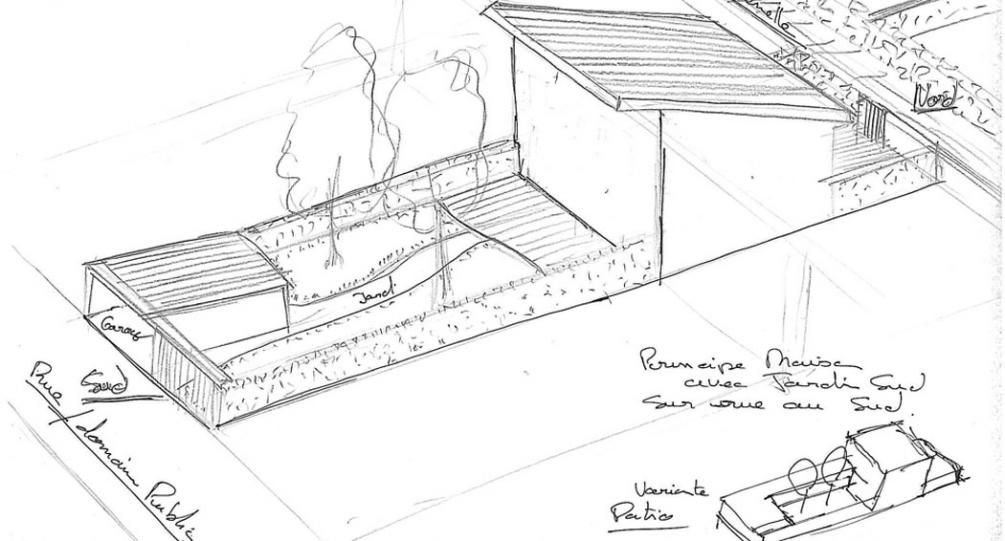 Nord
Garage
Jard
Sud
Rue / domaine Public
Principe Maison
avec Jardin Sud
Sur rue au Sud.
Variante
Patio